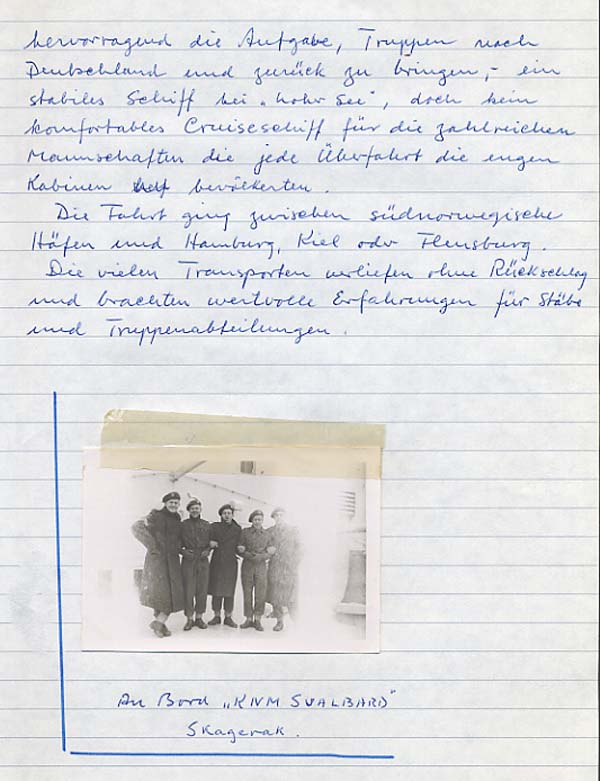 hervorragend die Aufgabe, Truppen nach
Deutschland und zurück zu bringen,- ein
stabiles Schiff bei „hohr See", doch kein
komfortables Cruiseschiff für die zahlreichen
Mannschaften die jede Überfahrt die engen
Kabinen bevölkerten.
Die Fahrt ging zwischen südnorwegische
Häfen und Hamburg, Kiel oder Flensburg.
Die vielen Transporten verliefen ohne Rückschlag
und brachten wertvolle Erfahrungen für Stäbe
und Truppenabteilungen.
An Bord „KNM SVALBARD"
Skagerak.